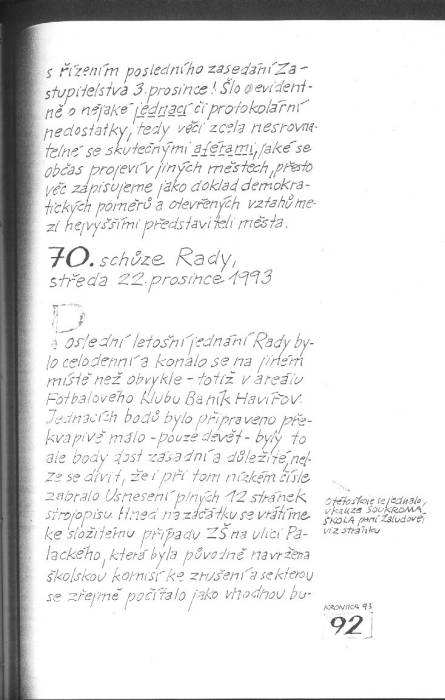 s řízením posledního zasedání Za-
stupitelstva 3. prosince! Šlo o evident-
ně o nějaké jednací či protokolární
nedostatky, tedy věci zcela nesrovna-
telné se skutečnými aférami, jaké se
občas projeví v jiných městech, přesto
věc zapisujeme jako doklad demokra-
tických poměrů a otevřených vztahů me-
zi nejvyššími představiteli města.
70. schůze Rady,
středa 22. prosince 1993
Poslední letošní jednání Rady by-
lo celodenní a konalo se na jiném
místě než obvykle - totiž v areálu
Fotbalového klubu Baník Havířov.
Jednacích bodů bylo připraveno pře-
kvapivě málo - pouze devět - byly to
ale body dost zásadní a důležité, nel-
ze se divit, že i při tom nízkém čísle
zabralo Usnesení plných 12 stránek
strojopisu. Hned na začátku se vrátíme
ke složitému případu ZŠ na ulici Pa-
lackého, která byla původně navržena
školskou komisí ke zrušení a se kterou
se zřejmě počítalo jako vhodnou bu-
O této škole se jednalo
v kauze SOUKROMÁ
ŠKOLA paní Žaludové,
viz stránku
KRONIKA 93
92